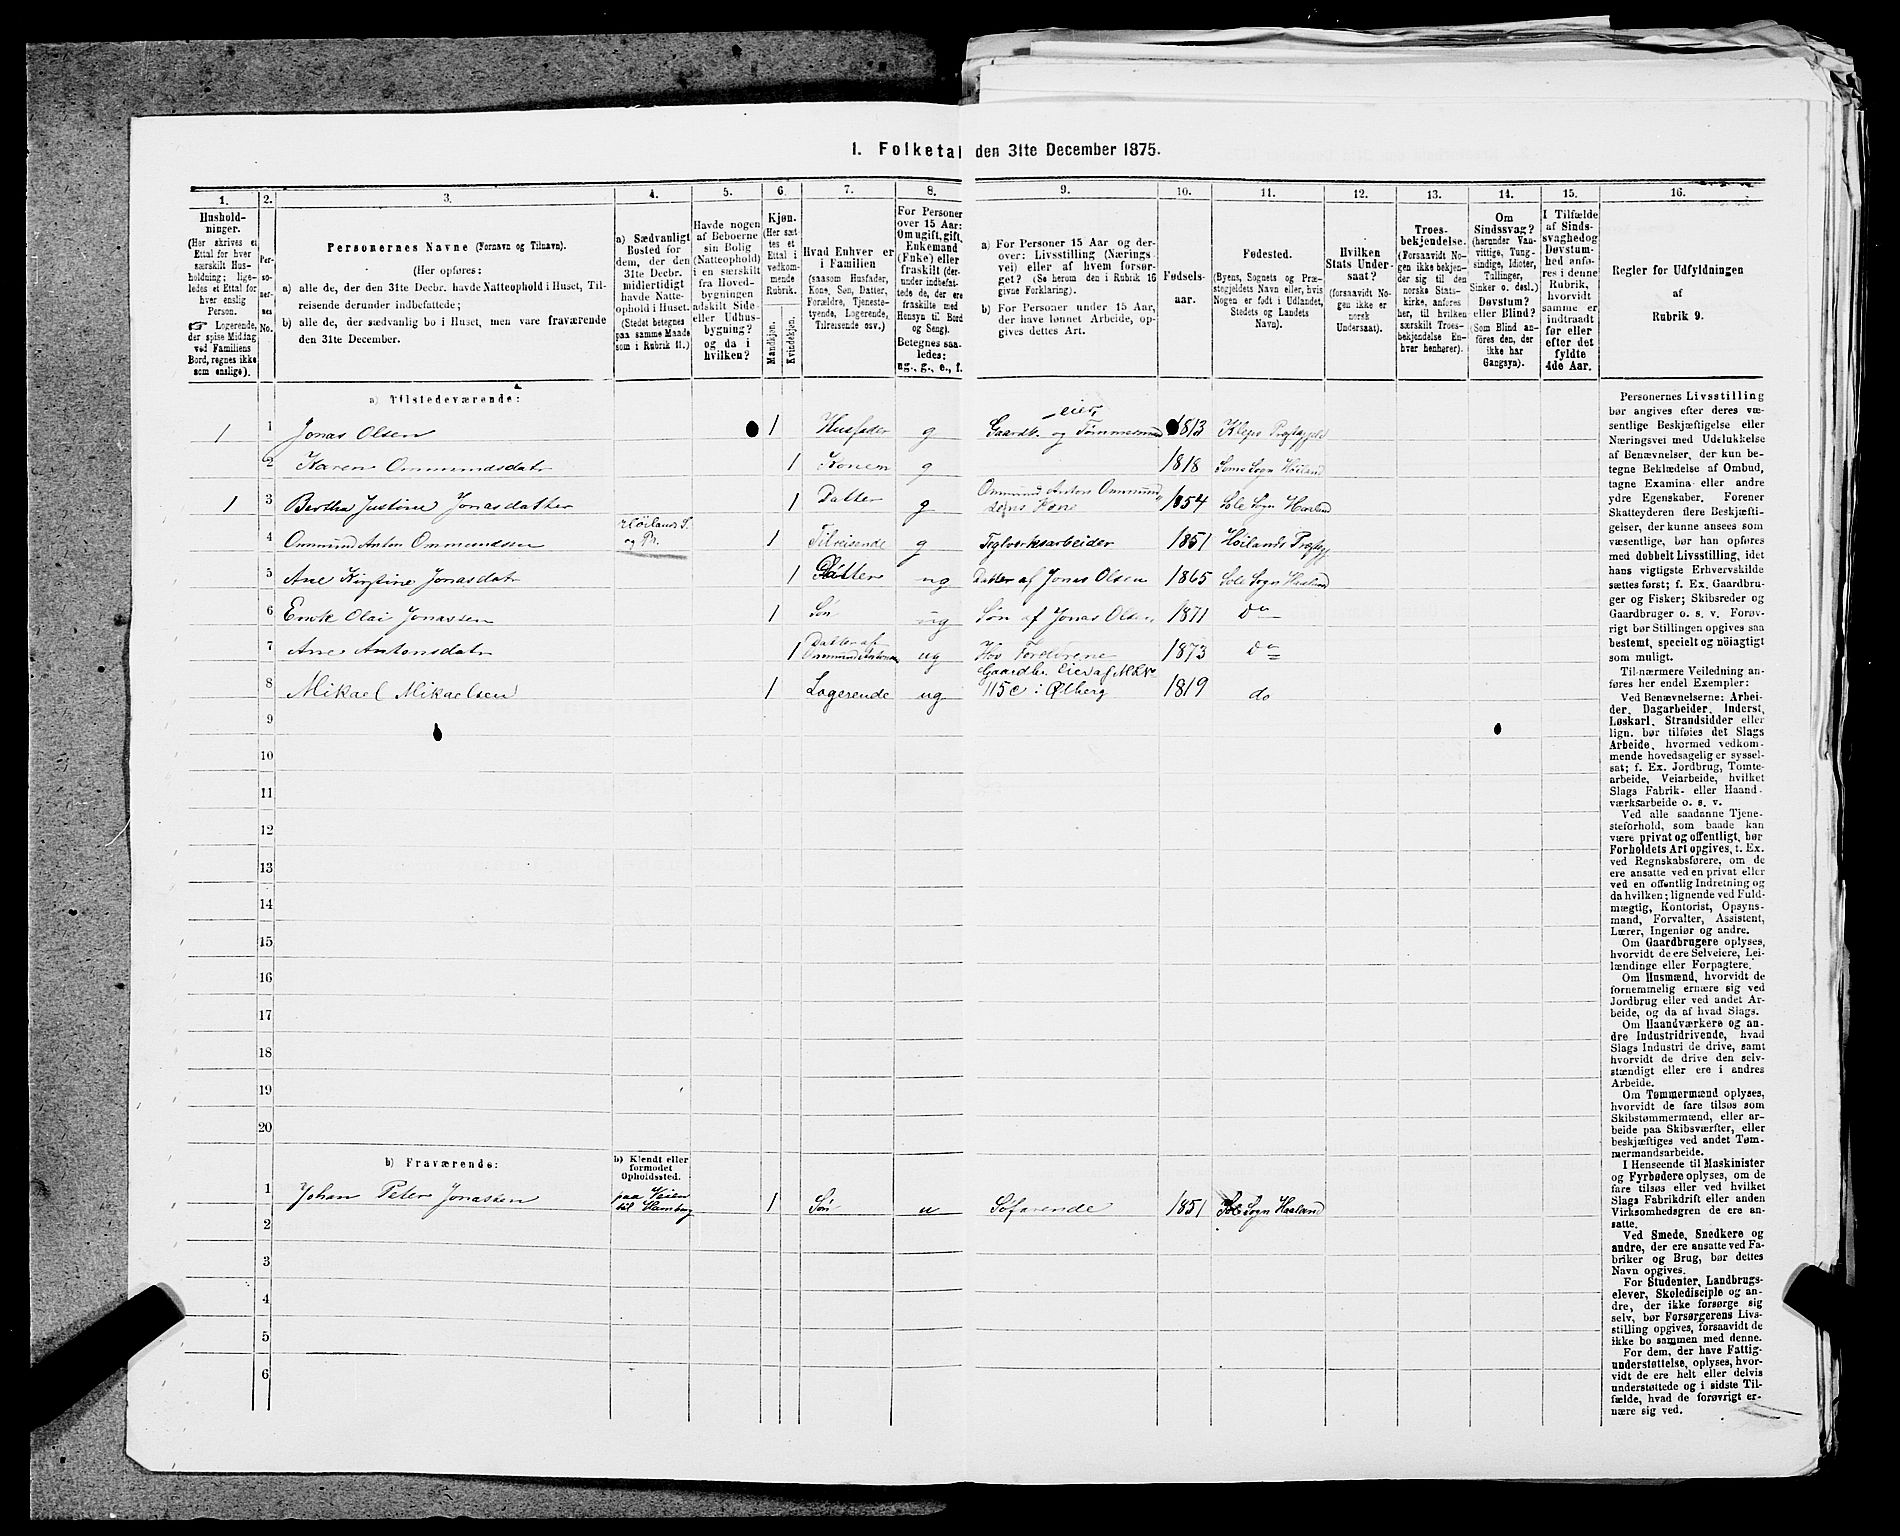 1. Folketal den 31te December 1875.
1.
2.
3.
4.
5.
6.
7.
8.
9.
10.
11.
12.
13.
14.
15.
16.
Hushold-
ninger.
(Her skrives et
Ettal for hver
særskilt Hus-
holdning; lige-
ledes et Ettal for
hver enslig
Person.
☞ Logerende,
der spise Middag
ved Familiens
Bord, regnes ikke
som enslige).
Per-
so-
ner-
nes
No.
Personernes Navne (Fornavn og Tilnavn).
(Her opføres:
a) alle de, der den 31te Decbr. havde Natteophold i Huset, Til-
reisende derunder indbefattede;
b) alle de, der sædvanlig bo i Huset, men vare fraværende
den 31te December.
a) Sædvanligt
Bosted for
dem, der den
31te Decbr.
midlertidigt
havde Natte-
ophold i Huset.
(Stedet betegnes
paa samme Maade
som i Rubrik 11.)
Havde nogen
af Beboerne
sin Bolig
(Natteophold)
i en særskilt
fra Hoved-
bygningen
adskilt Side
eller Udhus-
bygning?
og da i
hvilken?
Kjøn.
(Her sæt
tes et
Ettal i
vedkom-
mende
Rubrik.
Mandkjøn.
Kvindekjøn.
Hvad Enhver er
i Familien
(saasom Husfader,
Kone, Søn, Datter,
Forældre, Tjeneste-
tyende, Logerende,
Tilreisende osv.)
For Personer
over 15 Aar:
Om ugift, gift,
Enkemand
(Enke) eller
fraskilt (der-
under indbefat-
tede de, der ere
fraskilte med
Hensyn til Bord
og Seng).
Betegnes saa-
ledes:
ug., g., e., f.
a) For Personer 15 Aar og der-
over: Livsstilling (Nærings-
vei) eller af hvem forsør-
get? (Se herom den i Rubrik 16
givne Forklaring).
b) For Personer under 15 Aar,
der have lønnet Arbeide, op-
gives dettes Art.
Fødsels-
aar.
Fødested.
(Byens, Sognets og Præ-
stegjeldets Navn eller, hvis
Nogen er født i Udlandet,
Stedets og Landets
Navn).
Hvilken
Stats Under-
saat?
(forsaavidt No-
gen ikke er
norsk
Undersaat).
Troes-
bekjendelse.
(Forsaavidt No-
gen ikke bekjen-
der sig til den
norske Stats-
kirke, anføres
her, til hvilken
særskilt Troes-
bekjendelse En-
hver henhører).
Om
Sindssvag?
(herunder Van-
vittige, Tung-
sindige, Idioter,
Tullinger,
Sinker o. desl.)
Døvstum?
eller Blind?
(Som Blind an-
føres den, der
ikke har
Gangsyn).
I Tilfælde
af Sinds-
svaghed og
Døvstum-
hed anfø-
res i denne
Rubrik,
hvorvidt
samme er
indtraadt
før eller
efter det
fyldte
4de Aar.
Regler for Udfyldningen
af
Rubrik 9.
a) Tilstedeværende:
1 1 Jonas Olsen 1 Husfader g Gaardb.-eier og Tømmermand 1813 Klepo Præstgjeld
2 Karen Ommundsdatr 1 Konen g 1818 Soma Sogn Höiland
1 3 Bertha Justine Jonasdatter 1 Datter g Ommund Anton Ommund
dsens Kone 1854 Sole Sogn Haaland
4 Ommund Anton Ommundsen Höilands S.
og Pr. 1 Tilreisende g Teglverksarbeider 1851 Höilands Præstgj
5 Ane Kirstine Jonasdatr 1 Datter ug Datter af Jonas Olsen 1865 Sole Sogn Haaland
6 Enok Olai Jonassen 1 Søn ug Søn af Jonas Olsen 1871 Do
7 Ane Antonsdatr 1 Datter af
Ommund Antonsen ug Hos Forældrene 1873 Do
8 Mikael Mikaelsen 1 Logerende ug Gaardbr. Eier af M.N.
115c i Ølberg 1819 do
9
10
11
12
13
14
15
16
17
18
19
20
b) Fraværende:
b) Kjendt eller
formodet
Opholdssted.
1 Johan Peter Jonassen paa Veien
til Hamborg 1 Søn u Søfarende 1851 Sole Sogn Haaland
2
3
4
5
6
Personernes Livsstilling
bør angives efter deres væ-
sentlige Beskjæftigelse eller
Næringsvei med Udelukkelse
af Benævnelser, der kun be-
tegne Beklædelse af Ombud,
tagne Examina eller andre
ydre Egenskaber. Forener
Skatteyderen flere Beskjæfti-
gelser, der kunne ansees som
væsentlige, bør han opføres
med dobbelt Livsstilling, idet
hans vigtigste Erhvervskilde
sættes først; f. Ex. Gaardbru-
ger og Fisker; Skibsreder og
Gaardbruger o. s. v. Forøv-
rigt bør Stillingen opgives saa
bestemt, specielt og nöiagtigt
som muligt.
Til nærmere Veiledning an-
føres her endel Exempler:
Ved Benævnelserne: Arbei-
der, Dagarbeider, Inderst,
Løskarl, Strandsidder eller
lign. bør tilføies det Slags
Arbeide, hvormed vedkom-
mende hovedsagelig er syssel-
sat; f. Ex. Jordbrug, Tomte-
arbeide, Veiarbeide, hvilket
Slags Fabrik- eller Haand-
værksarbeide o. s. v.
Ved alle saadanne Tjene-
steforhold, som baade kan
være privat og offentligt, bør
Forholdets Art opgives, t. Ex.
ved Regnskabsførere, om de
ere ansatte ved en privat eller
ved en offentlig Indretning og
da hvilken; lignende ved Fuld-
mægtig, Kontorist, Opsyns-
mand, Forvalter, Assistent,
Lærer, Ingeniør og andre.
Om Gaardbrugere oplyses,
hvorvidt de ere Selveiere, Lei-
lændinge eller Forpagtere.
Om Husmænd, hvorvidt de
fornemmelig ernære sig ved
Jordbrug eller ved andet Ar-
beide, og da af hvad Slags.
Om Haandværkere og an-
dre Industridrivende, hvad
Slags Industri de drive, samt
hvorvidt de drive den selv-
stændigt eller ere i andres
Arbeide.
Om Tømmermænd oplyses,
hvorvidt de fare tilsøs som
Skibstømmermænd, eller ar-
beide paa Skibsværfter, eller
beskjæftiges ved andet Tøm-
mermandsarbeide.
I Henseende til Maskinister
og Fyrbødere oplyses, om de
fare tilsøs eller ved hvilket
Slags Fabrikdrift eller anden
Virksomhedsgren de ere an-
satte.
Ved Smede, Snedkere og
andre, der ere ansatte ved Fa-
briker og Brug, bør dettes
Navn opgives.
For Studenter, Landbrugs-
elever, Skoledisciple og an-
dre, der ikke forsørge sig
selv, bør Forsørgerens Livs-
stilling opgives, forsaavidt de
ikke bo sammen med denne.
For dem, der have Fattig-
understøttelse, oplyses, hvor-
vidt de ere helt eller delvis
understøttede og i sidste Til-
fælde, hvad de forøvrigt er-
nære sig ved.